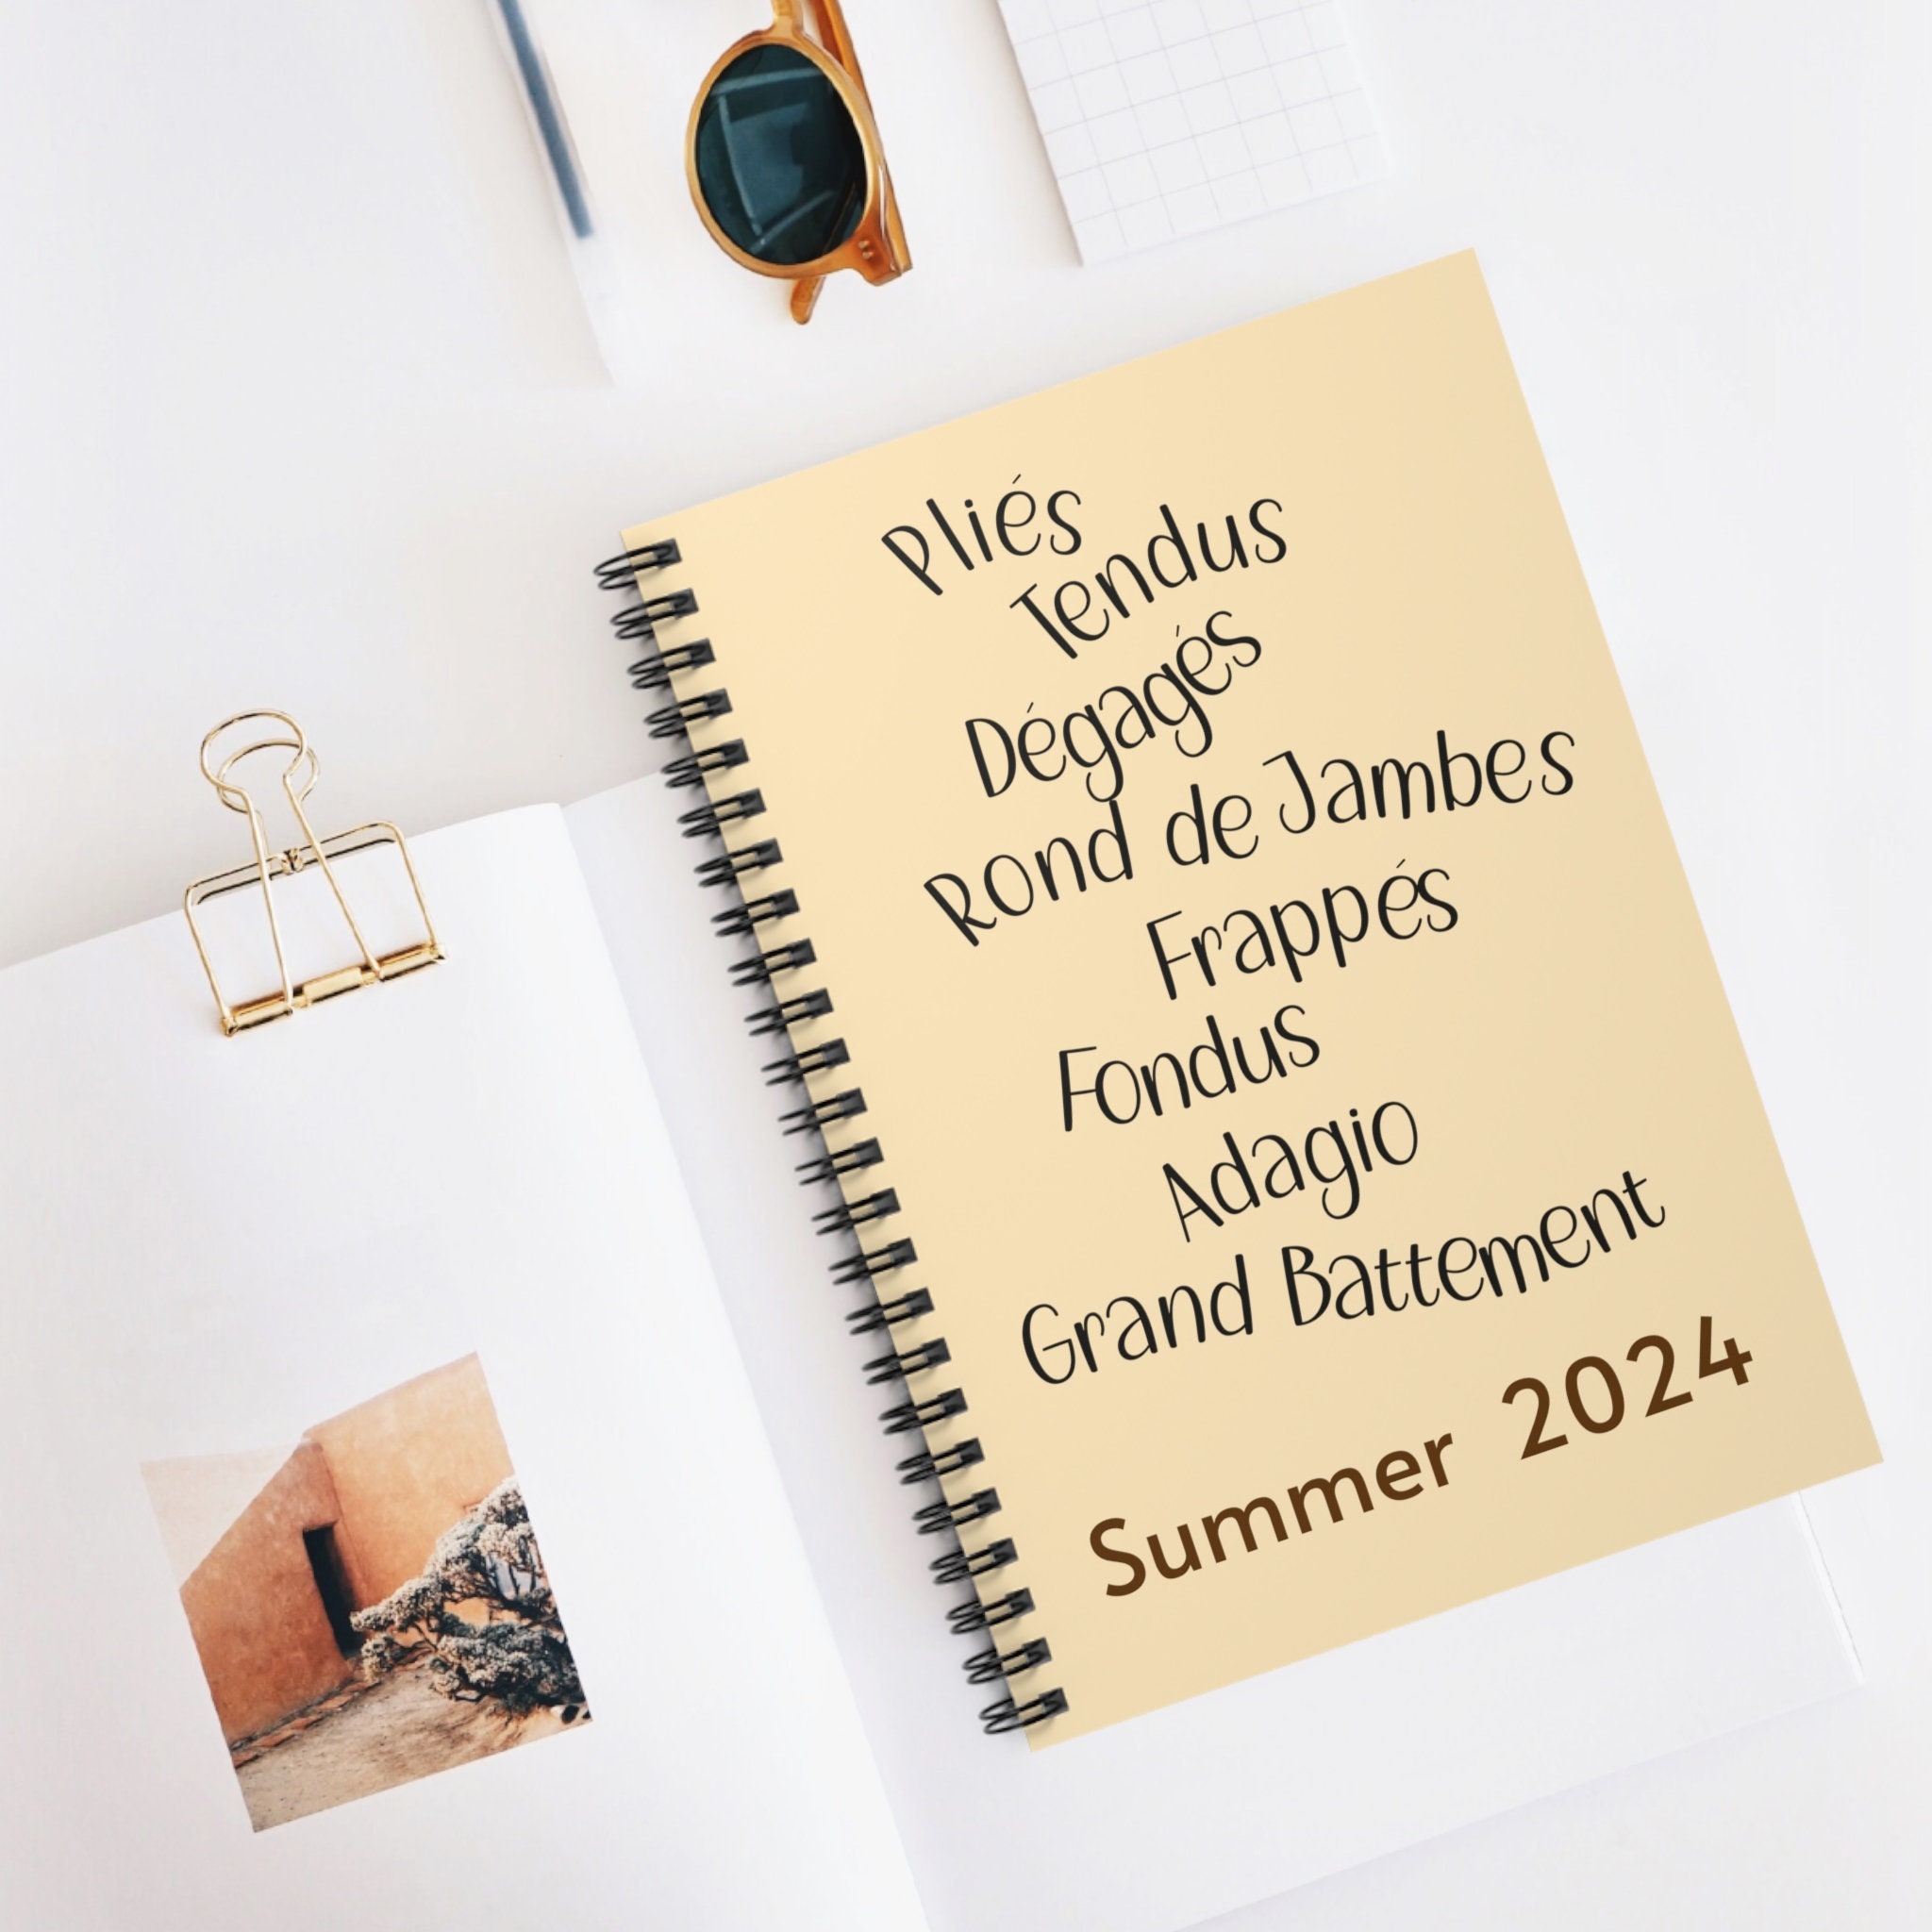 Pliés
Tendus
Dégagés
Rond de Jambes
Frappés
Fondus
Adagio
Grand Battement
Summer 2024